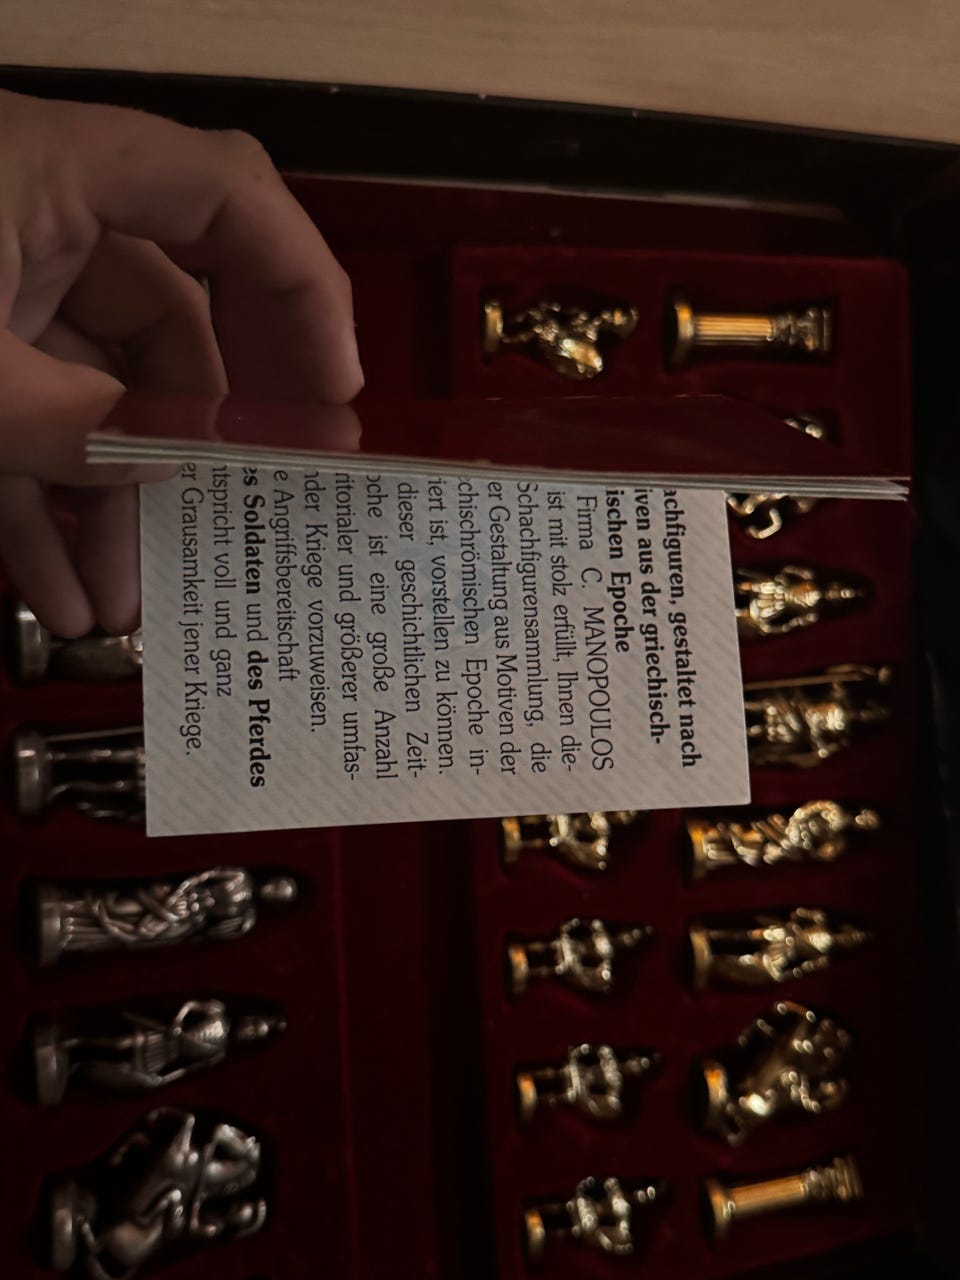 achfiguren, gestaltet nach
iven aus der griechisch-
ischen Epoche
Firma C. MANOPOULOS
ist mit stolz erfüllt, Ihnen die-
Schachfigurensammlung, die
er Gestaltung aus Motiven der
chischrömischen Epoche in-
iert ist, vorstellen zu können.
dieser geschichtlichen Zeit-
oche ist eine große Anzahl
ritorialer und größerer umfas-
nder Kriege vorzuweisen.
e Angriffsbereitschaft
es Soldaten und des Pferdes
ntspricht voll und ganz
er Grausamkeit jener Kriege.